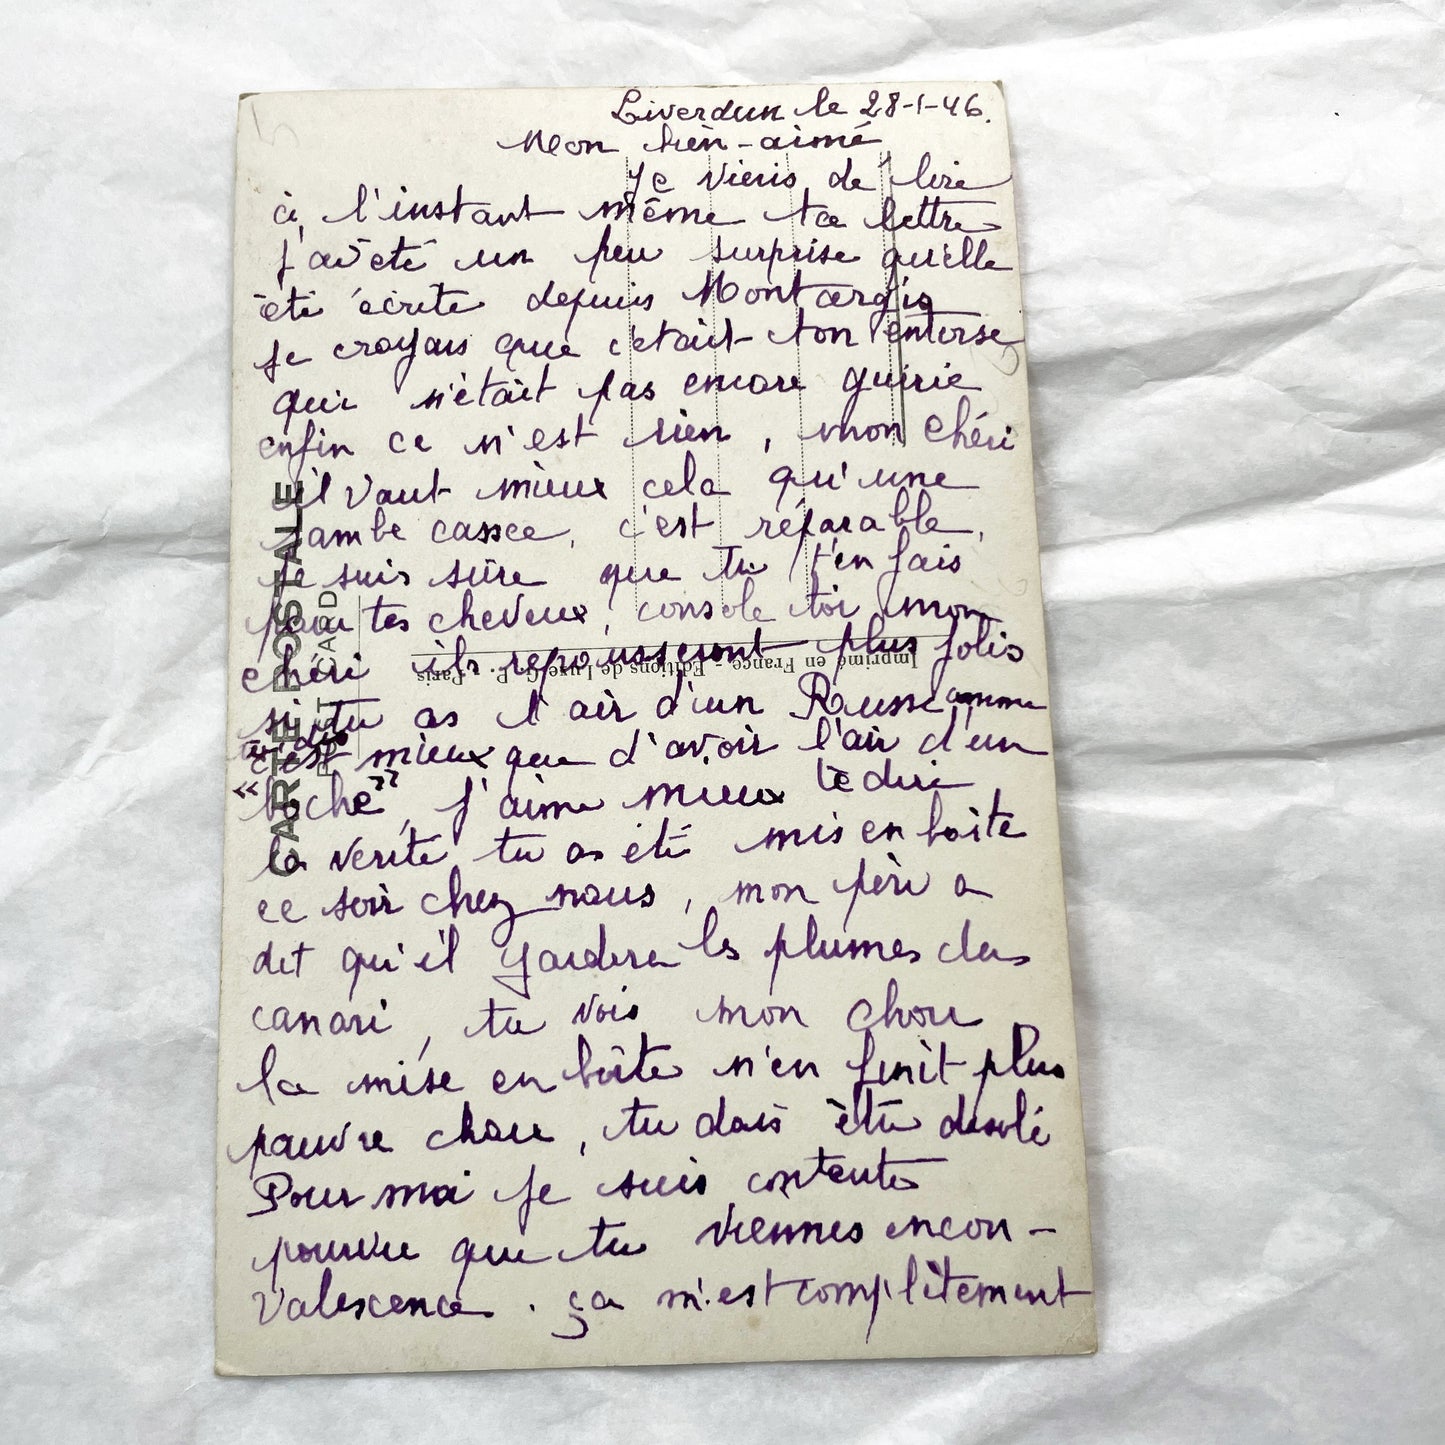 Liverdun le 28-1-46.
Mon bien-aimé
Je viens de lire
à l'instant même ta lettre
j'ai été un peu surprise qu'elle
été écrite depuis Montargis
je croyais que c'était ton entorse
qui n'était pas encore guirie
enfin ce n'est rien, mon chéri
il vaut mieux cela qu'une
jambe cassee, c'est réparable,
je suis sûre que tu t'en fais
pour tes cheveux, console toi mon
chéri ils repousseront plus jolis
si tu as l'air d'un Russe comme
tu dis
c'est mieux que d'avoir l'air d'un
"boche", j'aime mieux te dire
la verité tu as été mis en boite
ce soir chez nous, mon père a
dit qu'il gardera les plumes des
canari, tu vois mon chou
la mise en boîte n'en finit plus
pauvre chou, tu dois être désolé
Pour moi je suis contente
pourvu que tu viennes en con-
valescence. ça m'est complètement
CARTE POSTALE
POST CARD
Imprimé en France - Editions de Luxe G. P. - Paris